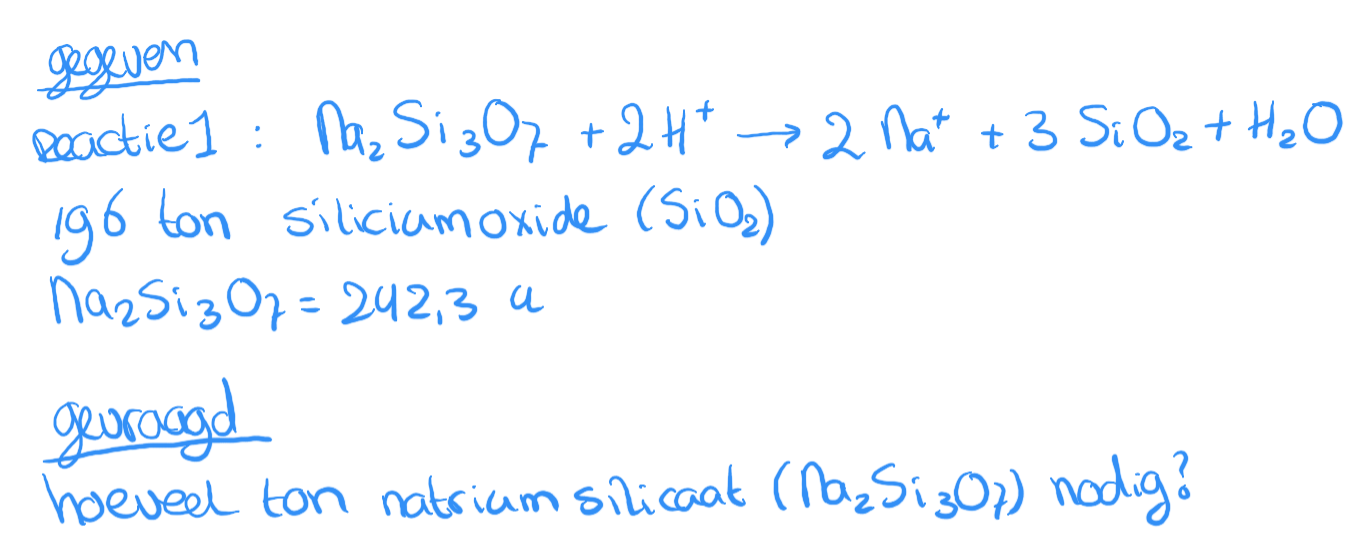 gegeven
reactie1 : Na₂Si₃O₇ + 2H⁺ → 2 Na⁺ + 3 SiO₂ + H₂O
196 ton siliciumoxide (SiO₂)
Na₂Si₃O₇ = 242,3 u
gevraagd
hoeveel ton natriumsilicaat (Na₂Si₃O₇) nodig?